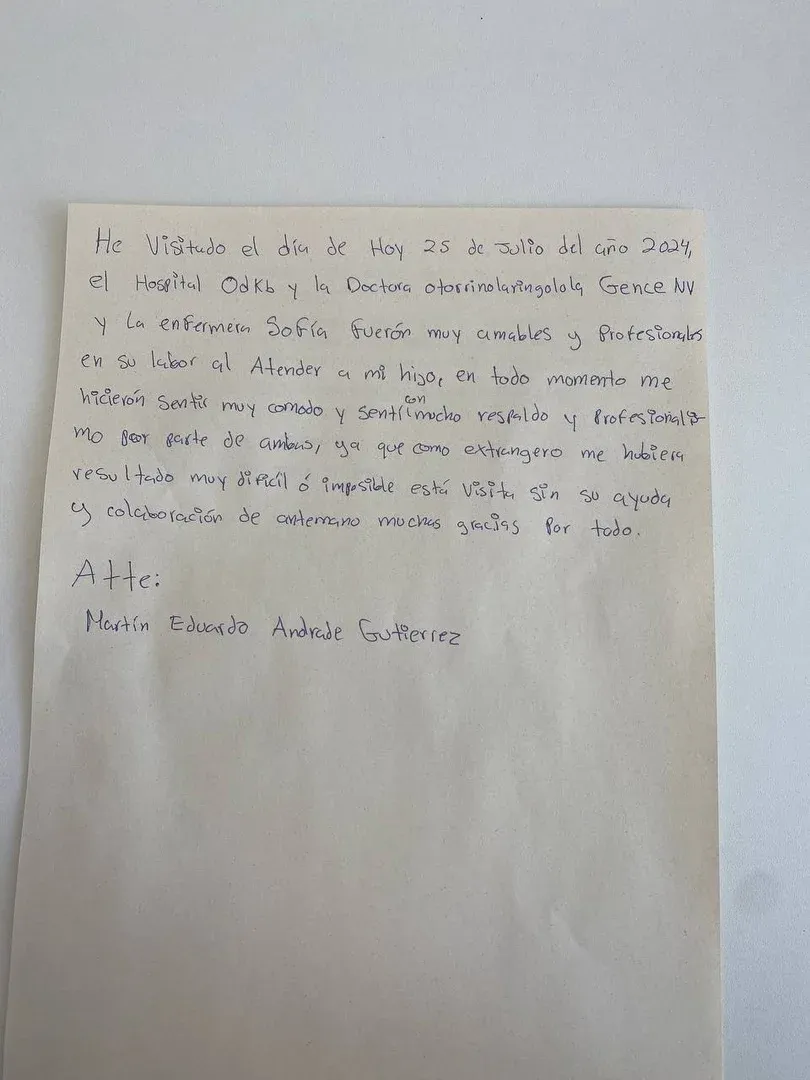 He Visitado el día de Hoy 25 de Julio del año 2024,
el Hospital OdKb y la Doctora otorrinolaringolola Gence NV
y La enfermera Sofía fuerón muy amables y Profesionales
en su labor al Atender a mi hijo, en todo momento me
hicierón sentir muy comodo y sentí con mucho respaldo y Profesionalis
mo por parte de ambas, ya que como extrangero me hubiera
resultado muy dificíl ó imposible está Visita sin su ayuda
y colaboración de antemano muchas gracias Por todo.
Atte:
Martín Eduardo Andrade Gutierrez